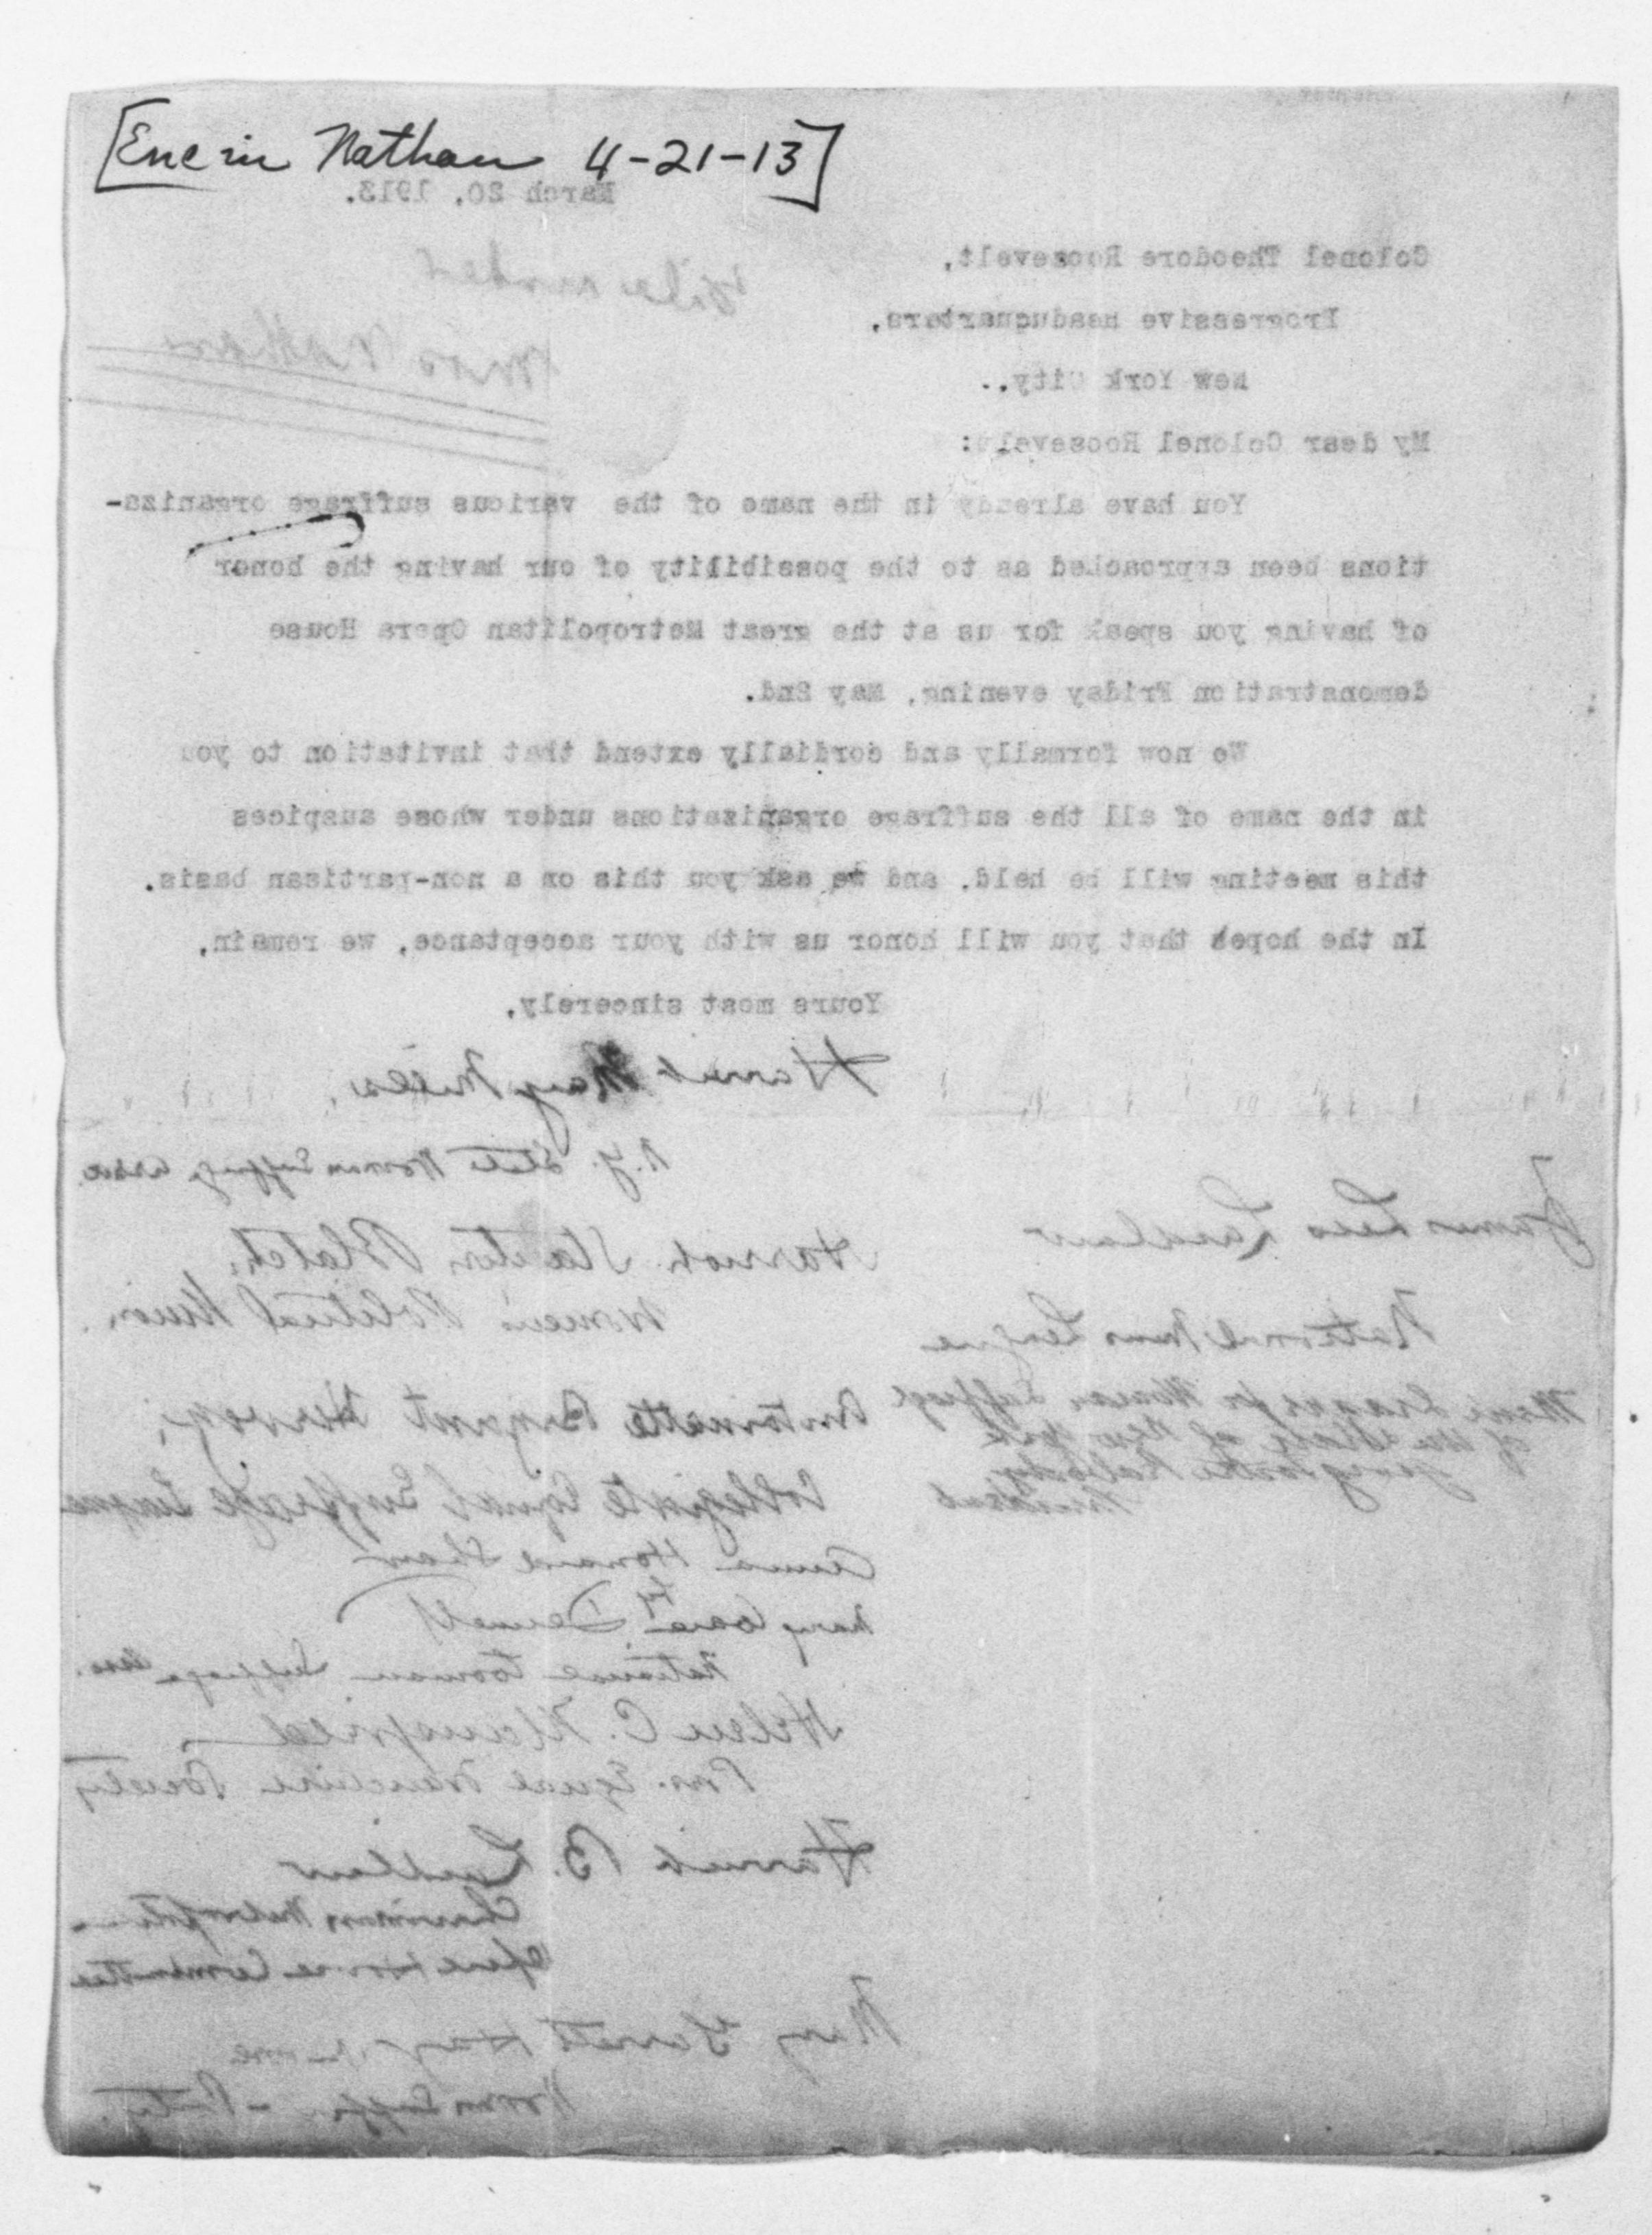 [Enc in Nathan 4-21-13]
March 20, 1913.
File under
Mrs Nathan
Colonel Theodore Roosevelt,
Progressive Headquarters,
New York City..
My dear Colonel Roosevelt:
You have already in the name of the various suffrage organiza-
tions been approached as to the possibility of our having the honor
of having you speak for us at the great Metropolitan Opera House
demonstration Friday evening, May 2nd.
We now formally and cordially extend that invitation to you
in the name of all the suffrage organizations under whose auspices
this meeting will be held, and we ask you this on a non-partisan basis.
In the hopes that you will honor us with your acceptance, we remain,
Yours most sincerely,
Harriet May Mills,
N.Y. State Woman Suffrage Assn.
Harriot Stanton Blatch,
Women's Political Union.
Antoinette Bryant Hervey,
Collegiate Equal Suffrage League
Anna Howard Shaw
Mary Ware Dennett
National Woman Suffrage Assn.
Helen C. Mansfield
Pres. Equal Franchise Society
Harriet B. Laidlaw
Chairman Metropolitan
Opera House Committee
Mary Garrett Hay
Woman Suffrage Party.
James Lees Laidlaw
National Mens League
Mens League for Woman Suffrage
of the State of New York
George Foster Peabody,
President